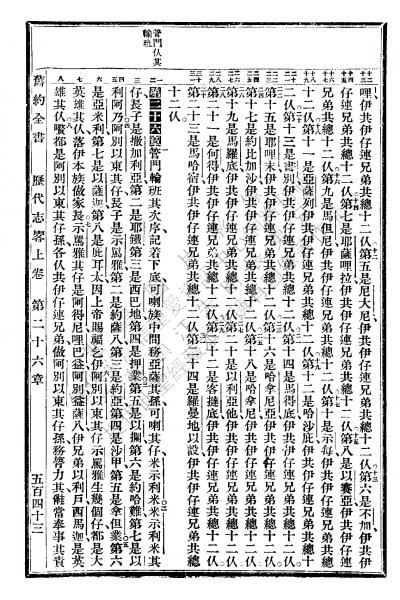 哩伊共伊仔連兄弟共總十二仫第五是尼大尼伊共伊仔連兄弟共總十二仫第六是不加伊共伊
仔連兄弟共總十二仫第七是耶薩哩拉伊共伊仔連兄弟共總十二仫第八是以賽亞伊共伊仔連
兄弟共總十二仫第九是馬但尼伊共伊仔連兄弟共總十二仫第十是示每伊共伊仔連兄弟共總
十二仫第十一是亞薩列伊共伊仔連兄弟共總十二仫第十二是哈沙庇伊共伊仔連兄弟共總十
二仫第十三是書別伊共伊仔連兄弟共總十二仫第十四是馬得底伊共伊仔連兄弟共總十二仫
第十五是耶哩末伊共伊仔連兄弟共總十二仫第十六是哈拿尼亞伊共伊仔連兄弟共總十二仫
第十七是約比加沙伊共伊仔連兄弟共總十二仫第十八是哈拿尼伊共伊仔連兄弟共總十二仫
第十九是馬羅底伊共伊仔連兄弟共總十二仫第二十是以利亞他伊共伊仔連兄弟共總十二仫
第二十一是何得伊共伊仔連兄弟共總十二仫第二十二是客撻底伊共伊仔連兄弟共總十二仫
第二十三是馬哈宿伊共伊仔連兄弟共總十二仫第二十四是羅曼地以設伊共伊仔連兄弟共總
十二仫
管門仫其輪班
第二十六章管門輪班其次序記若下底可喇族中間務亞薩其孫可喇其仔米示利米米示利米其
仔長子是撒加利亞第二是耶鐵第三是西巴地第四是押業第五是以攔第六是約哈難第七是以
利阿乃阿別以東其仔長子是示罵雅第二是約薩八第三是約亞第四是沙甲第五是拿但業第六
是亞米利第七是以薩迦第八是庇耳太因上帝賜福乞伊阿別以東其仔示罵雅生幾個仔都是大
英雄其仫落伊本族做家長示罵雅其仔是阿得尼哩巴益阿別益薩八伊兄弟以利戶西馬迦是英
雄其仫嚽都是阿別以東其孫各仫共伊仔連兄弟做阿別以東其孫務膂力其能當奉事其責
舊約全書 歷代志畧上卷 第二十六章 五百四十三